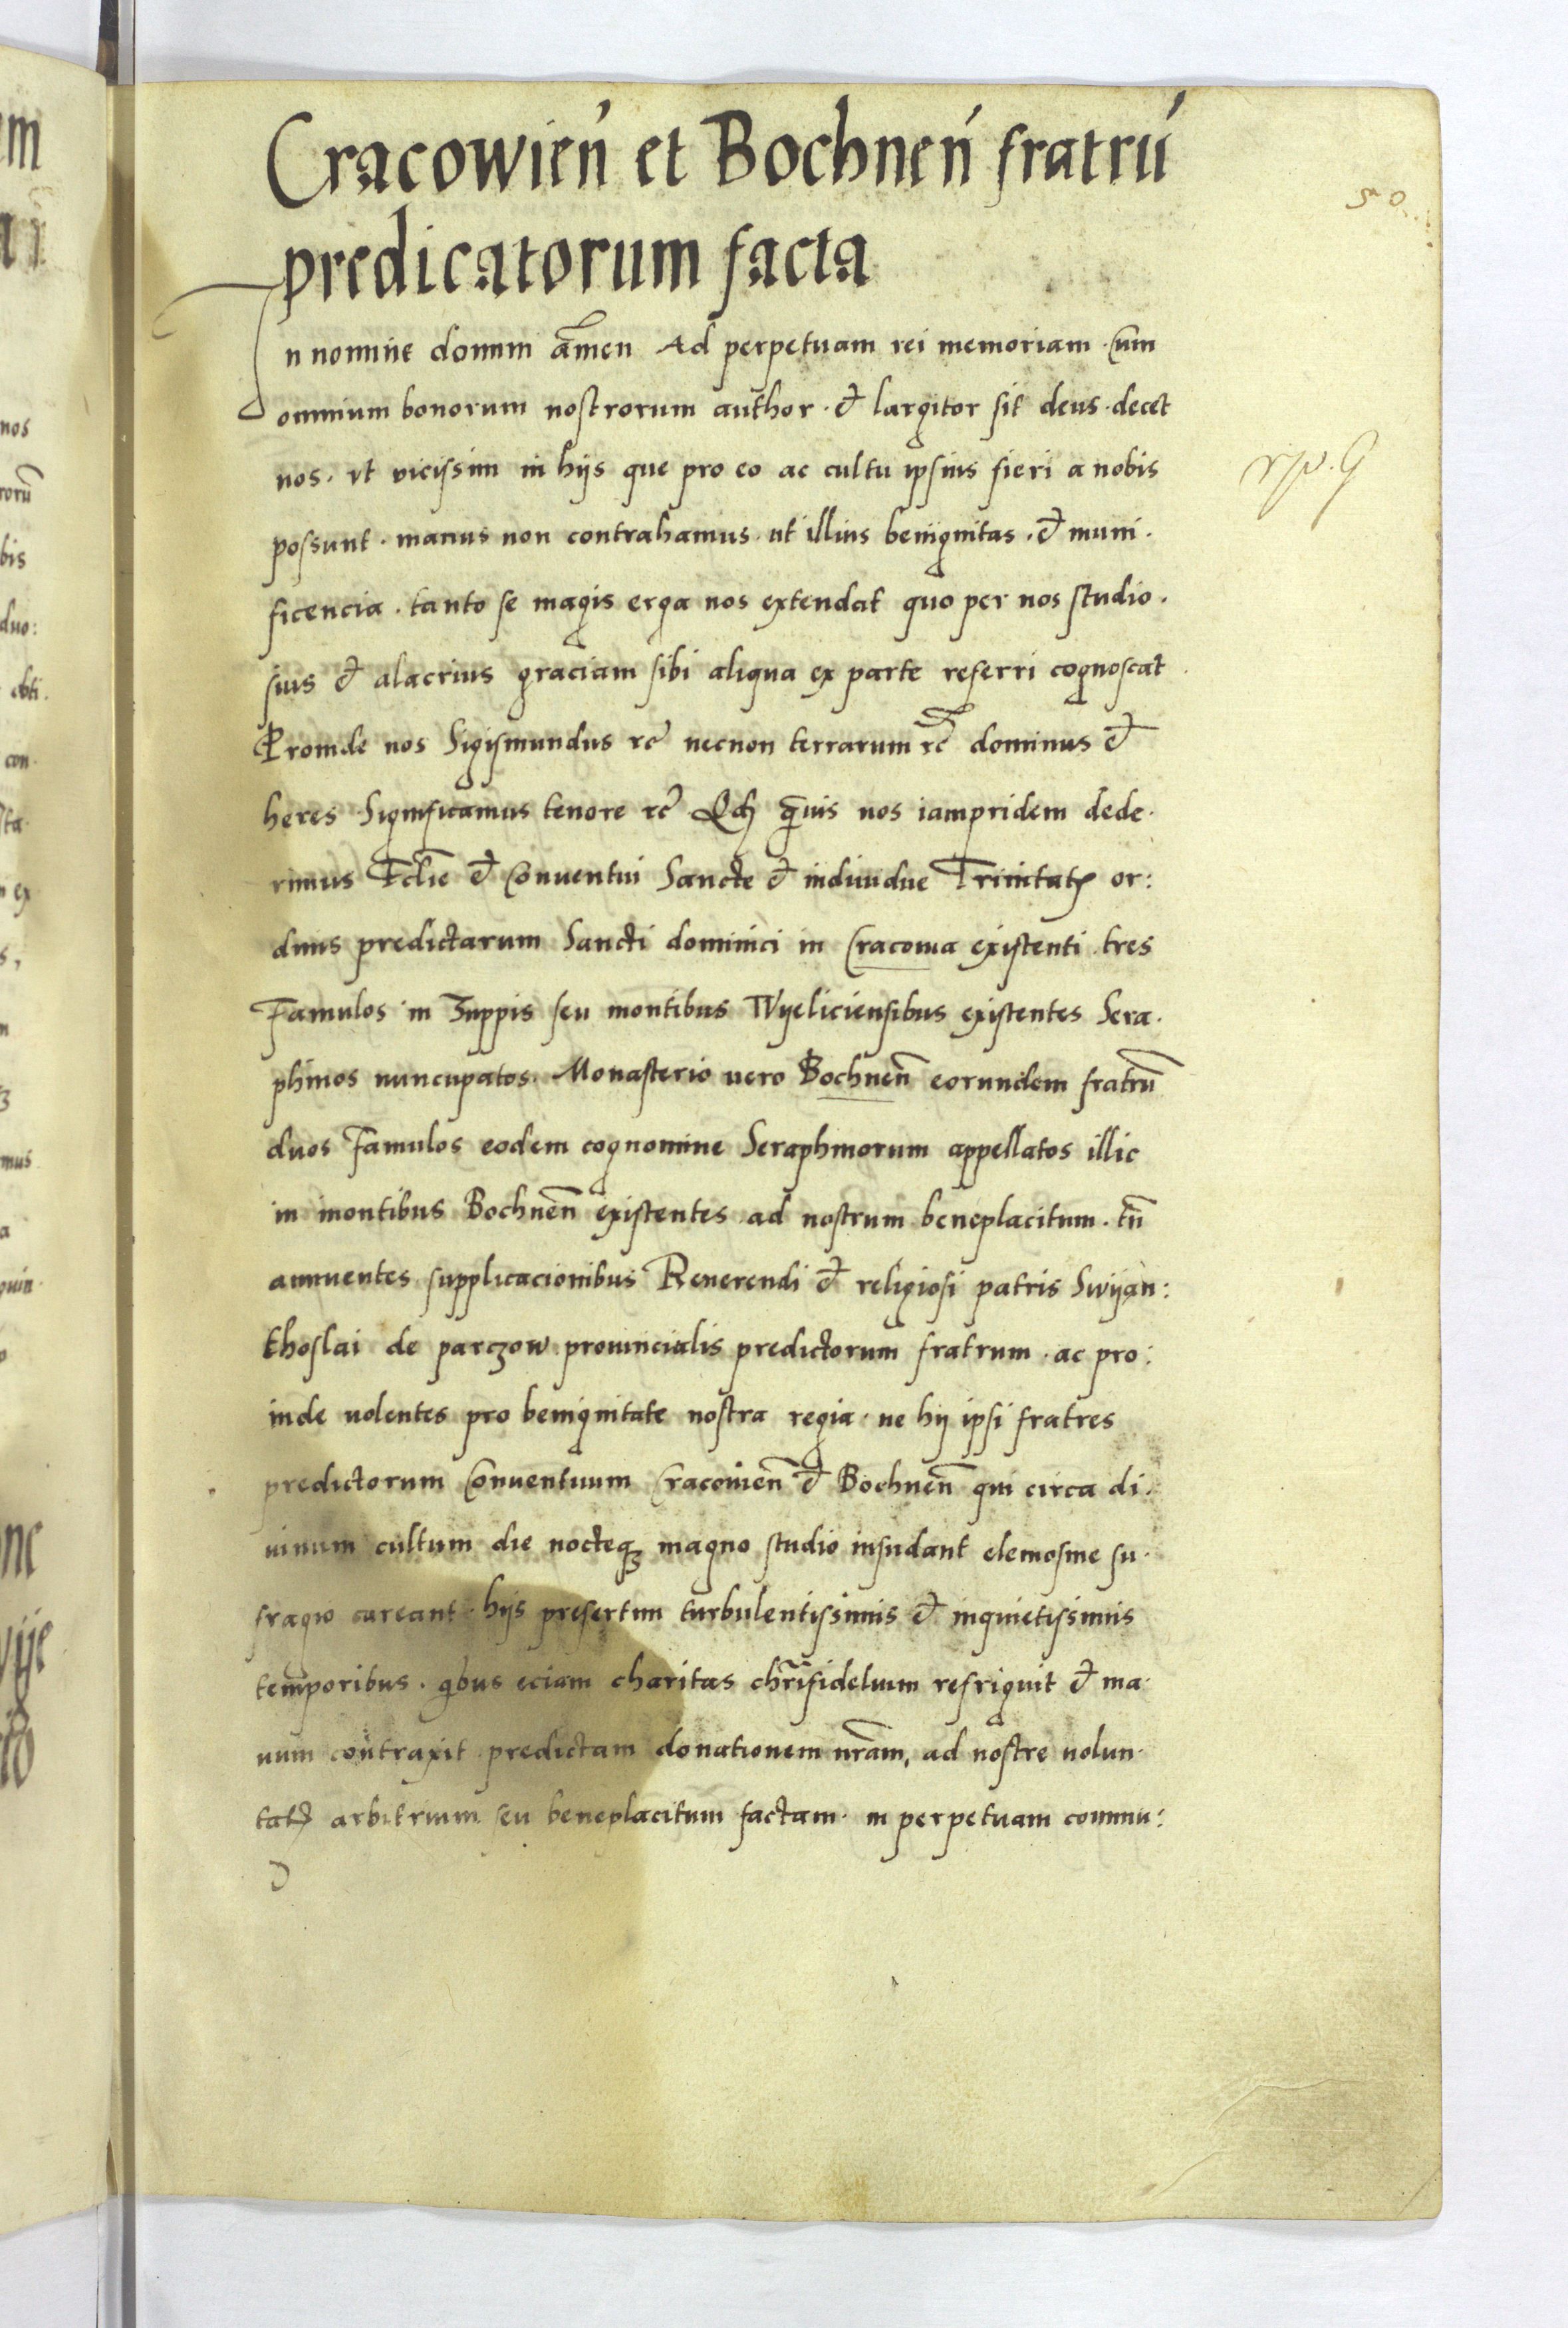 Cracowień et Bochneń fratrū
predicatorum facta
In nomine domini amen Ad perpetuam rei memoriam. Cum
omnium bonorum nostrorum author. et largitor sit deus. decet
nos. vt vicissim in hijs que pro eo ac cultu ipsius fieri a nobis
possunt. manus non contrahamus. ut illius benignitas. et muni.
ficencia. tanto se magis erga nos extendat quo per nos studio.
sius et alacrius graciam sibi aliqua ex parte referri cognoscat
Proinde nos Sigismundus rc̃ necnon terrarum rc̃ dominus et
heres Significamus tenore rc̃ Qđ q̃uis nos iampridem dede.
rimus Eclie̅ et Conuentui Sancte et indiuidue Trinitatꝭ or:
dinis predictarum Sancti dominici in Cracouia existenti tres
Famulos in Zuppis seu montibus Wyeliciensibus existentes Sera.
phinos nuncupatos. Monasterio uero Bochnen̄ eorundem fratrū
duos Famulos eodem cognomine Seraphinorum appellatos illic
in montibus Bochnen̄ existentes ad nostrum beneplacitum. tn̄
annuentes supplicacionibus Reuerendi et religiosi patris Swijan:
thoslai de parczow prouincialis predictorum fratrum. ac pro:
inde uolentes pro benignitate nostra regia. ne hij ipsi fratres
predictorum Conuentuum Cracouien̄ et Bochnen̄ qui circa di.
uinum cultum die nocteqꝫ magno studio insudant elemosine su.
fragio careant. hijs presertim turbulentissimis et inquietissimis
temporibus. qibus eciam charitas chrīfidelium refriguit et ma.
num contraxit predictam donationem nr̄am, ad nostre uolun.
tatꝭ arbitrium seu beneplacitum factam. in perpetuam commu:
D